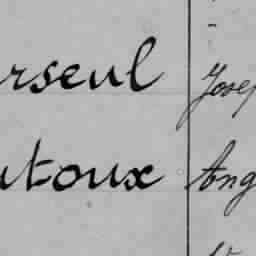 rseul Jose
utoux Ang